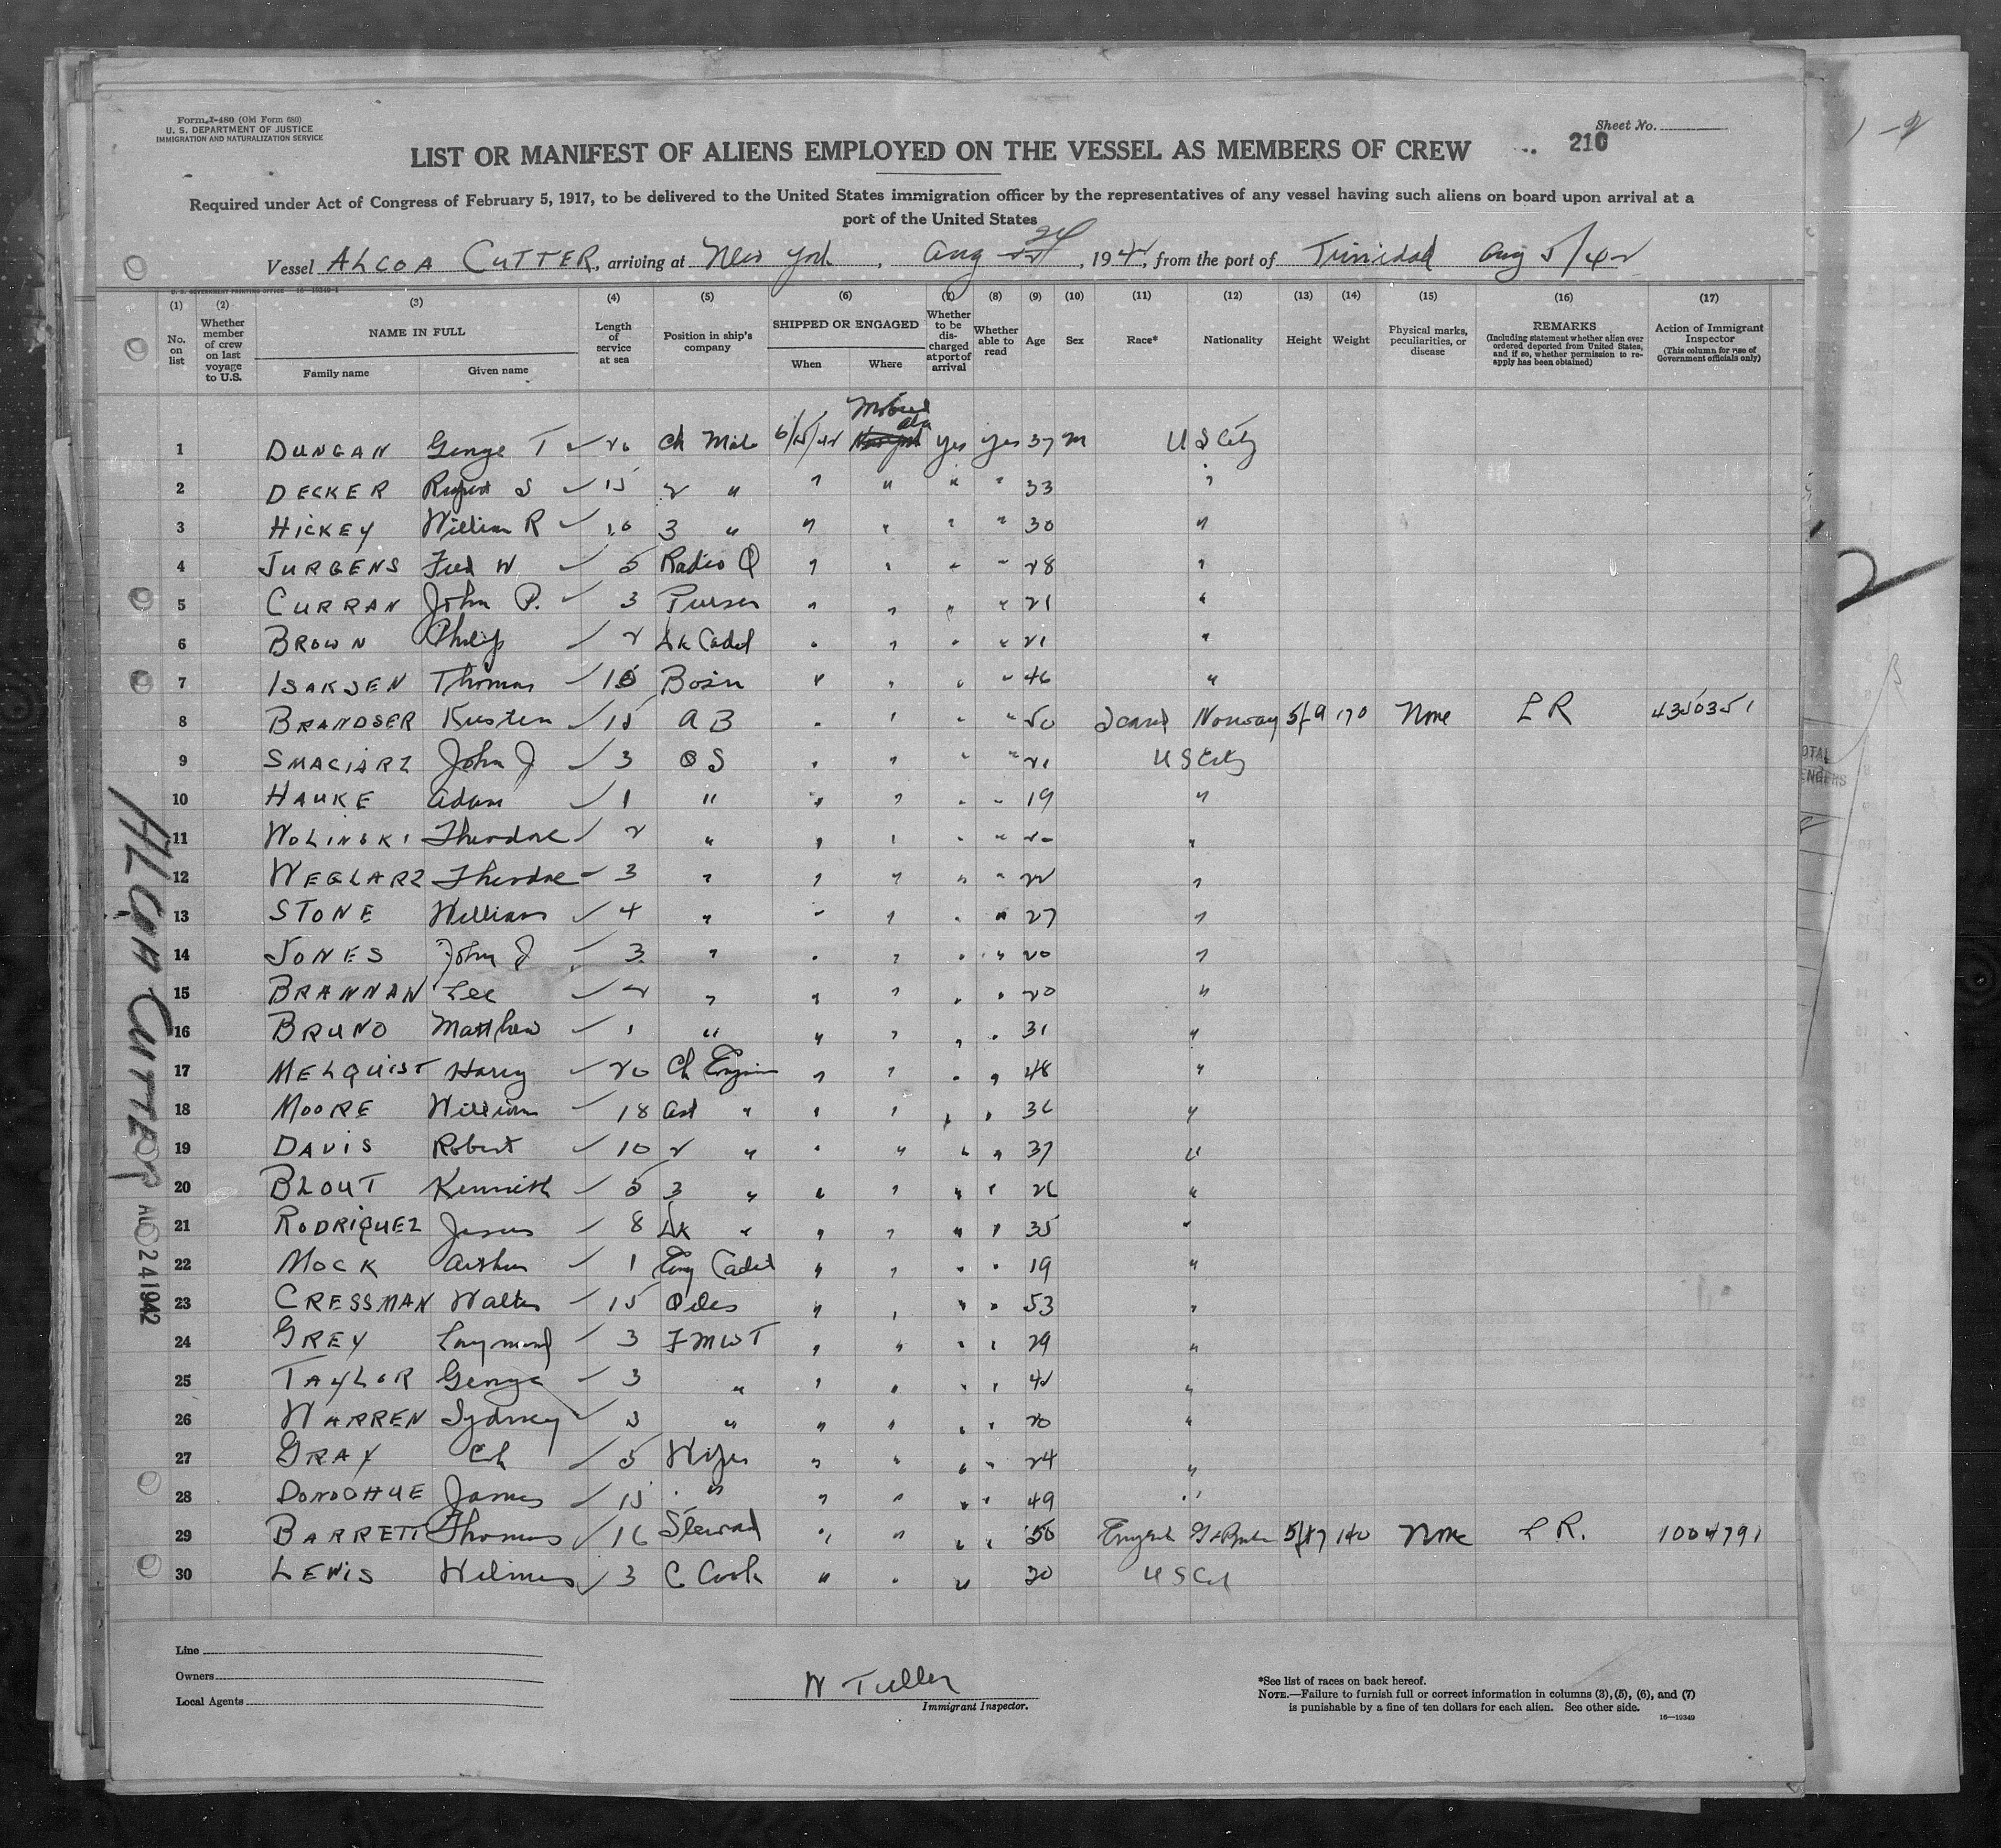 Form I-480 (Old Form 680)
U. S. DEPARTMENT OF JUSTICE
IMMIGRATION AND NATURALIZATION SERVICE
Sheet No.
210
LIST OR MANIFEST OF ALIENS EMPLOYED ON THE VESSEL AS MEMBERS OF CREW
Required under Act of Congress of February 5, 1917, to be delivered to the United States immigration officer by the representatives of any vessel having such aliens on board upon arrival at a
port of the United States
Vessel ALCOA CUTTER, arriving at New York, Aug 24, 1942, from the port of Trinidad Aug 5/42
U. S. GOVERNMENT PRINTING OFFICE 16—19349-1
(1) (2) (3) (4) (5) (6) (7) (8) (9) (10) (11) (12) (13) (14) (15) (16) (17)
No. on list
Whether member of crew on last voyage to U.S.
NAME IN FULL
Family name Given name
Length of service at sea
Position in ship's company
SHIPPED OR ENGAGED
When Where
Whether to be discharged at port of arrival
Whether able to read
Age
Sex
Race*
Nationality
Height
Weight
Physical marks, peculiarities, or disease
REMARKS
(Including statement whether alien ever ordered deported from United States, and if so, whether permission to reapply has been obtained)
Action of Immigrant Inspector
(This column for use of Government officials only)
1 DUNCAN George T 20 Ch Mate 6/15/42 Mobile Ala Yes Yes 37 M US City
2 DECKER S 15 2 " " " " " 33 "
3 HICKEY William R 10 3 " " " " " 30 "
4 JURGENS Fred W 5 Radio O " " " " 28 "
5 CURRAN John P. 3 Purser " " " " 21 "
6 BROWN Philip 2 Dk Cadet " " " " 21 "
7 ISAKSEN Thomas Bosn " " " " 46 "
8 BRANDSER 15 AB " " " " 50 Scand Norway 5/9 170 None LR 4350351
9 SMACIARZ John J 3 OS " " " " 21 US City
10 HAUKE Adam 1 " " " " " 19 "
11 WOLINSKI Theodore 2 " " " " " "
12 WEGLARZ Theodore 3 " " " " " 22 "
13 STONE William 4 " " " " " 27 "
14 JONES John J 3 " " " " " 20 "
15 BRANNAN Lee 2 " " " " " 20 "
16 BRUNO Matthew 1 " " " " " 31 "
17 MELQUIST Harry 20 Ch Engin " " " " 48 "
18 MOORE William 18 Ast " " " " " 36 "
19 DAVIS Robert 10 2 " " " " " 37 "
20 BLOUT Kenneth 5 3 " " " " " 26 "
21 RODRIQUEZ Jesus 8 Dk " " " " " 35 "
22 MOCK Arthur 1 Eng Cadet " " " " 19 "
23 CRESSMAN Walter 15 Oiler " " " " 53 "
24 GREY Raymond 3 FMWT " " " " 29 "
25 TAYLOR George 3 " " " " " 42 "
26 WARREN Sydney 3 " " " " " 20 "
27 GRAY 5 Wiper " " " " 24 "
28 DONOOHUE James 15 " " " " " 49 "
29 BARRETT Thomas 16 Steward " " " " 50 English 140 None LR. 1004791
30 LEWIS 3 C Cook " " " 30
ALCOA CUTTER
AUG 24 1942
Line
Owners
Local Agents
W Tuller
Immigrant Inspector.
*See list of races on back hereof.
NOTE.—Failure to furnish full or correct information in columns (3), (5), (6), and (7)
is punishable by a fine of ten dollars for each alien. See other side.
16—19349
2